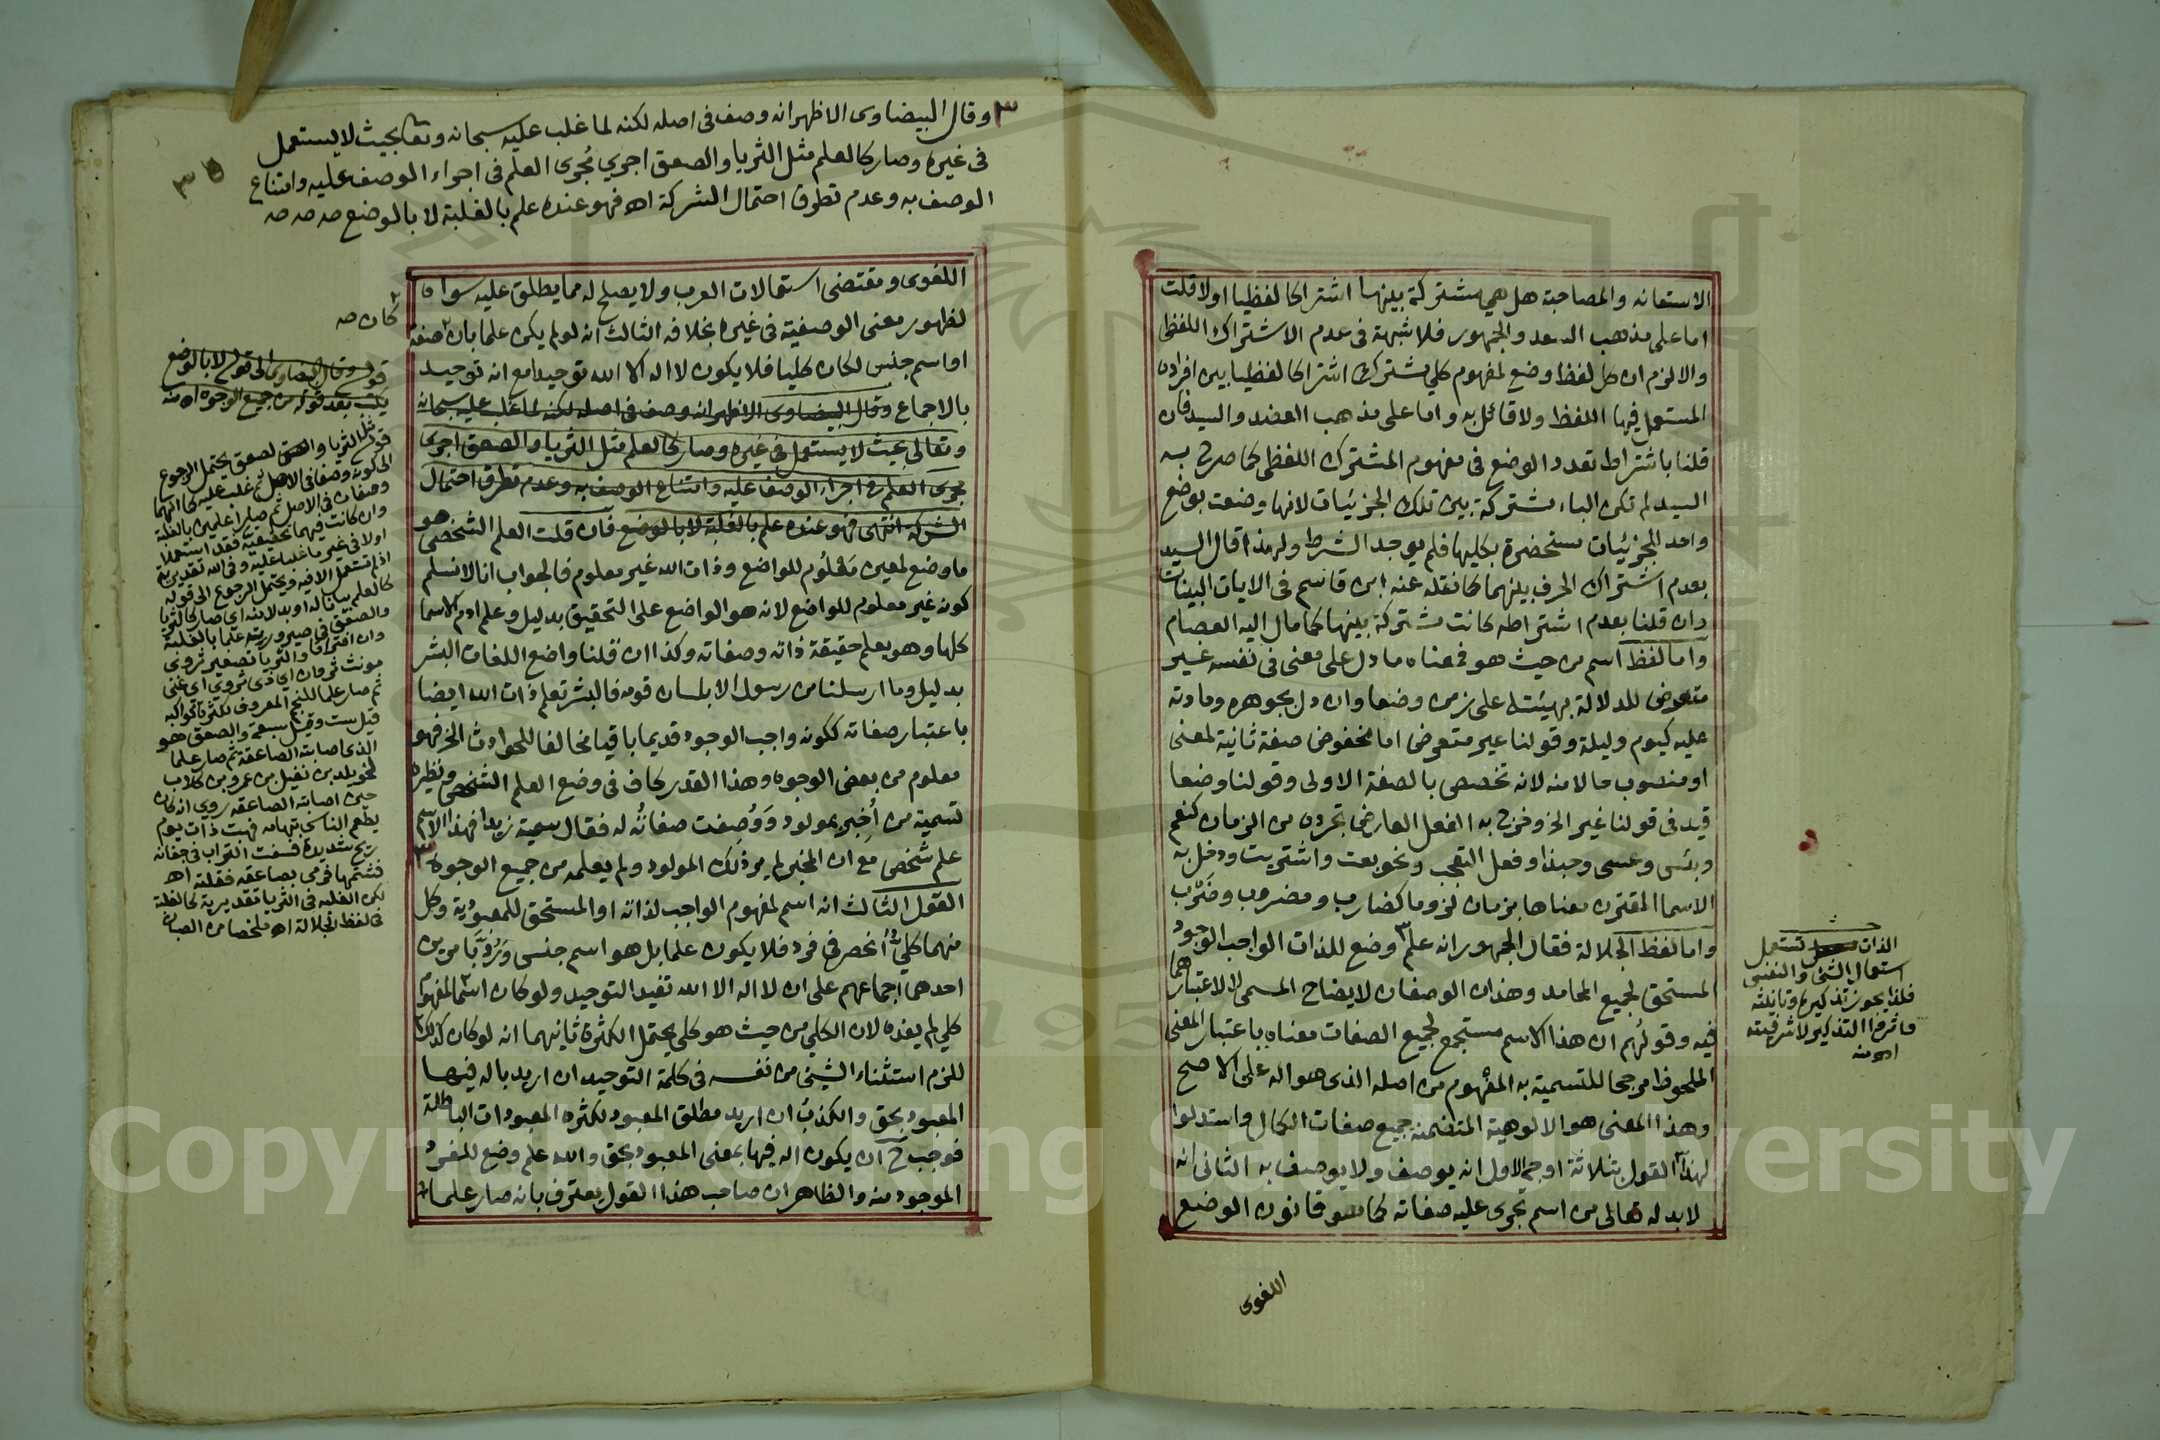 الاستعانه والمصاحبة هل هي مشتركة بينها اشتراكا لفظيا اولا قلت
اما على مذهب السعد والجمهور فلا شبهة فى عدم الاشتراك اللفظى
والا لزم ان كل لفظ وضع لمفهوم كلي مشترك اشتراكا لفظيا بين افراده
المستعمل فيها اللفظ ولا قائل به واما على مذهب العضد والسيد فان
قلنا باشتراط تعدد الوضع فى مفهوم المشترك اللفظى كما صرح به
السيد لم تكن الباء مشتركة بين تلك الجزئيات لانها وضعت بوضع
واحد للجزئيات مستحضرة بكليها فلم يوجد الشرط ولهذا قال السيد
بعدم اشتراك الحرف بينهما كما نقله عنه ابن قاسم فى الايات البينات
وان قلنا بعدم اشتراطه كانت مشتركة بينها كما مال اليه العصام
واما لفظ اسم من حيث هو فمعناه ما دل على معنى فى نفسه غير
متعرض للدلالة بهيئته على زمن وضعا وان دل بجوهره ومادته
عليه كيوم وليلة وقولنا غير متعرض اما مخفوض صفة ثانية لمعنى
او منصوب حالا منه لانه تخصص بالصفة الاولى وقولنا وضعا
قيد فى قولنا غير الخ وخرج به الفعل العارض تجرده من الزمان كنعم
وبئس وعسى وحبذا وفعل التعجب ونحو بعت واشتريت ودخل به
الاسما المقترن معناها بزمان لزوما كضارب ومضروب وضَرْب
واما لفظ الجلالة فقال الجمهور انه علم ٣ وضع للذات الواجب الوجود
المستحق لجميع المحامد وهذان الوصفان لايضاح المسمى لا لاعتبارهما
فيه وقولهم ان هذا الاسم مستجمع لجميع الصفات معناه باعتبار المعنى
الملحوظ مرجحا للتسمية به المفهوم من اصله الذى هو اله على الاصح
وهذا المعنى هو الالوهية المتضمنه جميع صفات الكمال واستدلوا
لهذا القول بثلاثة اوجه الاول انه يوصف ولا يوصف به الثانى انه
لا بد له تعالى من اسم تجرى عليه صفاته كما هو قانون الوضع
اللغوى
الذات تستعمل
استعمال الشئ والنفس
فلذا يجوز تذكيره وتانيثه
التذكير لا شرفيته
اه منه
٣ وقال البيضاوى الاظهر انه وصف فى اصله لكنه لما غلب عليه سبحانه وتعا بحيث لا يستعمل
فى غيره وصار كالعلم مثل الثريا والصعق اجري مُجرى العلم فى اجراء الوصف عليه وامتناع
الوصف به وعدم تطرق احتمال الشركة اه فهو عنده علم بالغلبة لا بالوضع صه صه صه
اللغوى ومقتضى استعمالات العرب ولا يصلح له مما يطلق عليه سواه
لظهور معنى الوصفية فى غيره بخلافه الثالث انه لو لم يكن علما بان ٢ صفة
او اسم جنس لكان كليا فلا يكون لا اله الا الله توحيدا مع انه توحيد
بالاجماع وقال البيضاوى الاظهر انه وصف فى اصله لكنه لما غلب عليه سبحانه
وتعالى بحيث لا يستعمل فى غيره وصار كالعلم مثل الثريا والصعق اجرى
مجرى العلم فى اجراء الوصف عليه وامتناع الوصف به وعدم تطرق احتمال
الشركة انتهى فهو عنده علم بالغلبة لا بالوضع فان قلت العلم الشخصى هو
ما وضع لمعين مَعْلُوم للواضع وذات الله غير معلوم فالجواب انا لا نسلم
كونه غير معلوم للواضع لانه هو الواضع على التحقيق بدليل وعلم ادم الاسما
كلها وهو يعلم حقيقة ذاته وصفاته وكذا ان قلنا واضع اللغات البشر
بدليل وما ارسلنا من رسول الا بلسان قومه فالبشر تعلم ذات الله ايضا
باعتبار صفاته ككونه واجب الوجود قديما باقيا مخالفا للحوادث الخ فهو
معلوم من بعض الوجوه وهذا القدر كاف فى وضع العلم الشخصى ونظيره
تسمية من أُخبر بمولود ووُصِفت صفاتُه له فقال سميته زيدا فهذا الاسم
علم شخصى مع ان المخبر لم ير ذلك المولود ولم يعلمه من جميع الوجوه ٣
القول الثالث انه اسم لمفهوم الواجب لذاته او المستحق للمعبودية وكل
منهما كلي انحصر فى فرد فلا يكون علما بل هو اسم جنس ورُدَّ بامرين
احدهما اجماعهم على ان لا اله الا الله تفيد التوحيد ولو كان اسما لمفهوم
كلي لم يفده لان الكلي من حيث هو كلي يحتمل الكثرة ثانيهما انه لو كان كذلك
للزم استثناء الشئ من نفسه فى كلمة التوحيد ان اريد باله فيها
المعبود بحق والكذبُ ان اريد مطلق المعبود لكثرة المعبودات الباطلة
فوجب ح ان يكون اله فيها بمعنى المعبود بحق والله علم وضع للمفرد
الموجود منه والظاهر ان صاحب هذا القول يعترف بانه صار علما
٢
كان صه
قوله وقال البيضاوى الى قوله لا بالوضع
يكتب بعد قوله من جميع الوجوه اه منه
قوله مثل الثريا والصعق يحتمل الرجوع
الى كونه وصفا فى الاصل ثم غلب عليه كما انهما
وصفان فى الاصل ثم صارا علمين بالغلبة
وان كانت فيهما تحقيقية فقد استعملا
اولا فى غير ما غلبا عليه وفى الله تقديرية
اذ لم تستعمل الا فيه ويحتمل الرجوع الى قوله
كالعلم بيانا له او بدلا منه اى صار كالثريا
والصعق فى صيرورته علما بالغلبة
وان افترقا والثريا تصغير ثروى
مونث ثروان اى ذى ثروى اى غنى
ثم صار علما للنجم المعروف لكثرة كواكبه
قيل ست وقيل سبعة والصعق هو
الذى اصابته الصاعقة ثم صار علما
لخويلد بن نفيل بن عمرو بن كلاب
حين اصابته الصاعقه روى انه كان
يطعم الناس بتهامه فهبت ذات يوم
ريح شديدة فسفت التراب فى جفانه
فشتمها فرمى بصاعقه فقتلته اه
لكن الغلبه فى الثريا تقديرية كالغلبة
فى لفظ الجلالة اه ملخصا من الصبان
Copyright © King Saud University
1957